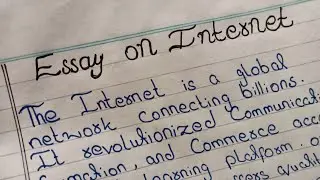 Essay on Internet
The Internet is a global
network connecting billions.
It revolutionized Communicat
mation, and Commerce acc
learning platform. o